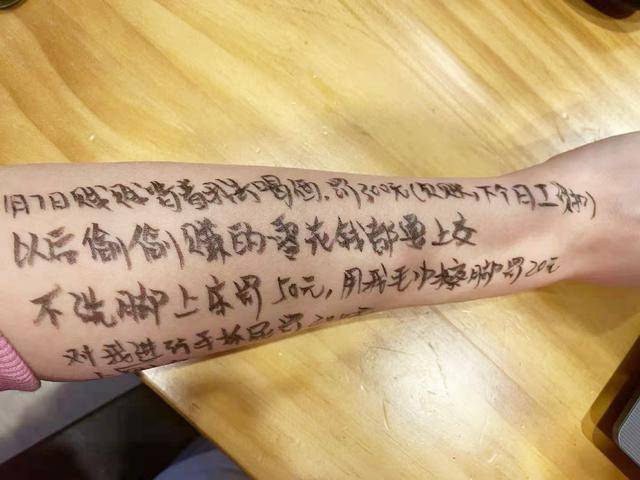 1月7日贱贱背着我去喝酒,罚300元(欠账,下个月工资)
以后偷偷赚的零花钱都要上交
不洗脚上床罚50元,用我毛巾擦脚罚20元
对我进行